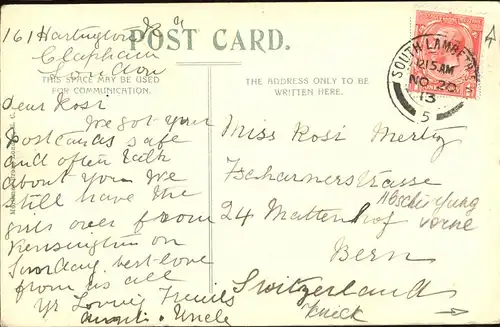 161 Hartington Rd
Clapham
London
POST CARD.
THIS SPACE MAY BE USED
FOR COMMUNICATION.
THE ADDRESS ONLY TO BE
WRITTEN HERE.
SOUTH LAMBETH
12.15 AM
NO 20
13
5
Dear Rosi
We got your
Postcards safe
and often talk
about you We
still have the
girls over from
Kensington on
Sunday. best love
from us all
Yr Loving Friends
Auntie & Uncle
Miss Rosi Mertz
Tscharnerstrasse
24 Mattenhof
Abschürfung
vorne
Bern
Switzerland
Knick